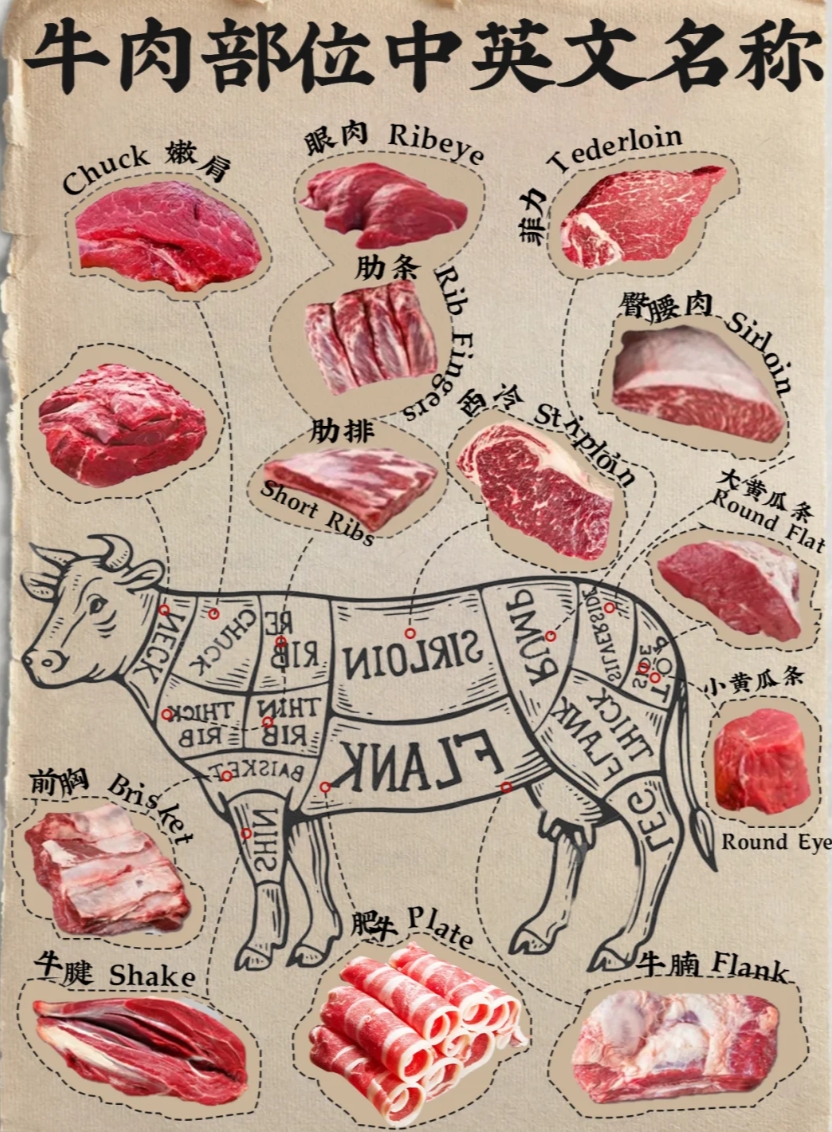 牛肉部位中英文名称
Chuck 嫩肩
眼肉 Ribeye
菲力 Tederloin
肋条 Rib Fingers
臀腰肉 Sirloin
西冷 Striploin
肋排
Short Ribs
大黄瓜条
Round Flat
NECK
CHUCK
RIB
SIRLOIN
RUMP
SILVERSIDE
THICK RIB
THIN RIB
BAISKET
FLANK
THICK FLANK
LEG
SHIN
小黄瓜条
Round Eye
前胸 Brisket
牛腱 Shake
肥牛 Plate
牛腩 Flank